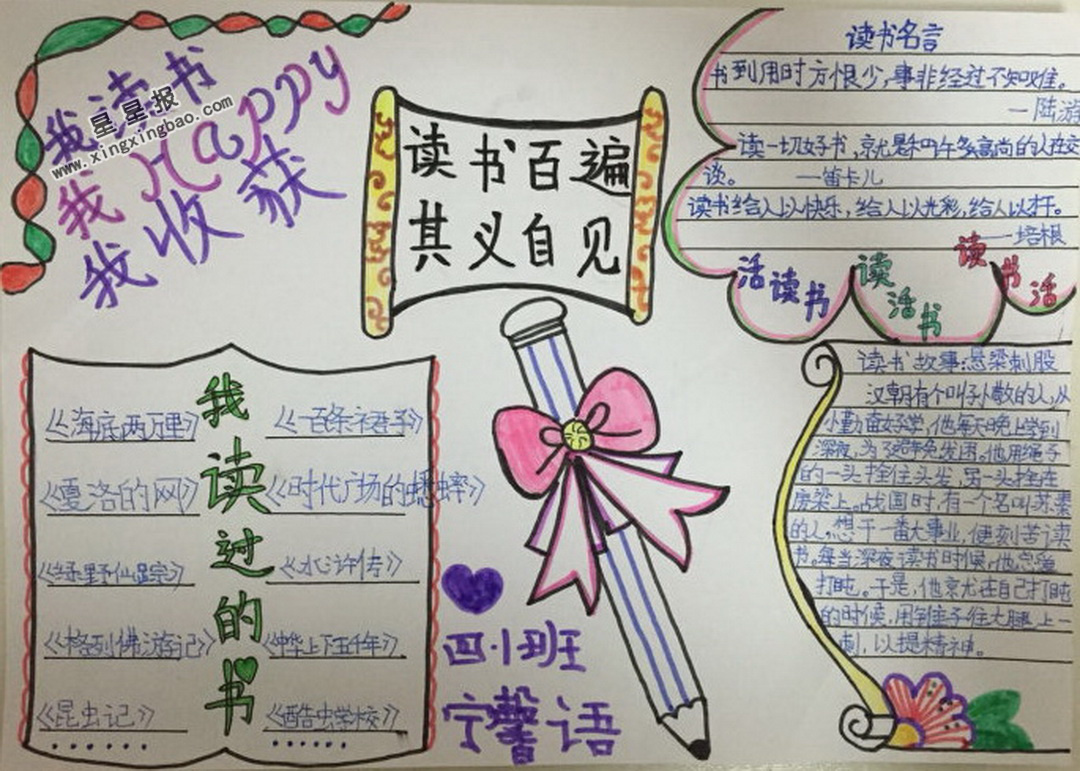 我读书
我Happy
我收获
星星报
www.xingxingbao.com
读书百遍
其义自见
读书名言
书到用时方恨少，事非经过不知难。
—陆游
读一切好书，就是和许多高尚的人在交
谈。 —笛卡儿
读书给人以快乐，给人以光彩，给人以才。
—培根
活读书
读活书
读书活
我读过的书
《海底两万里》
《一百条裙子》
《夏洛的网》
《时代广场的蟋蟀》
《绿野仙踪》
《水浒传》
《格列佛游记》
《中华上下五千年》
《昆虫记》
《酷虫学校》
四小班
宁馨语
读书故事：悬梁刺股
汉朝有个叫孙敬的人，从
小勤奋好学，他每天晚上学到
深夜，为了避免发困，他用绳子
的一头拴住头发，另一头拴在
房梁上。战国时，有一个名叫苏秦
的人，想干一番大事业，便刻苦读
书。每当深夜读书时候，他总爱
打盹。于是，他就在自己打盹
的时候，用锥子往大腿上一
刺，以提精神。